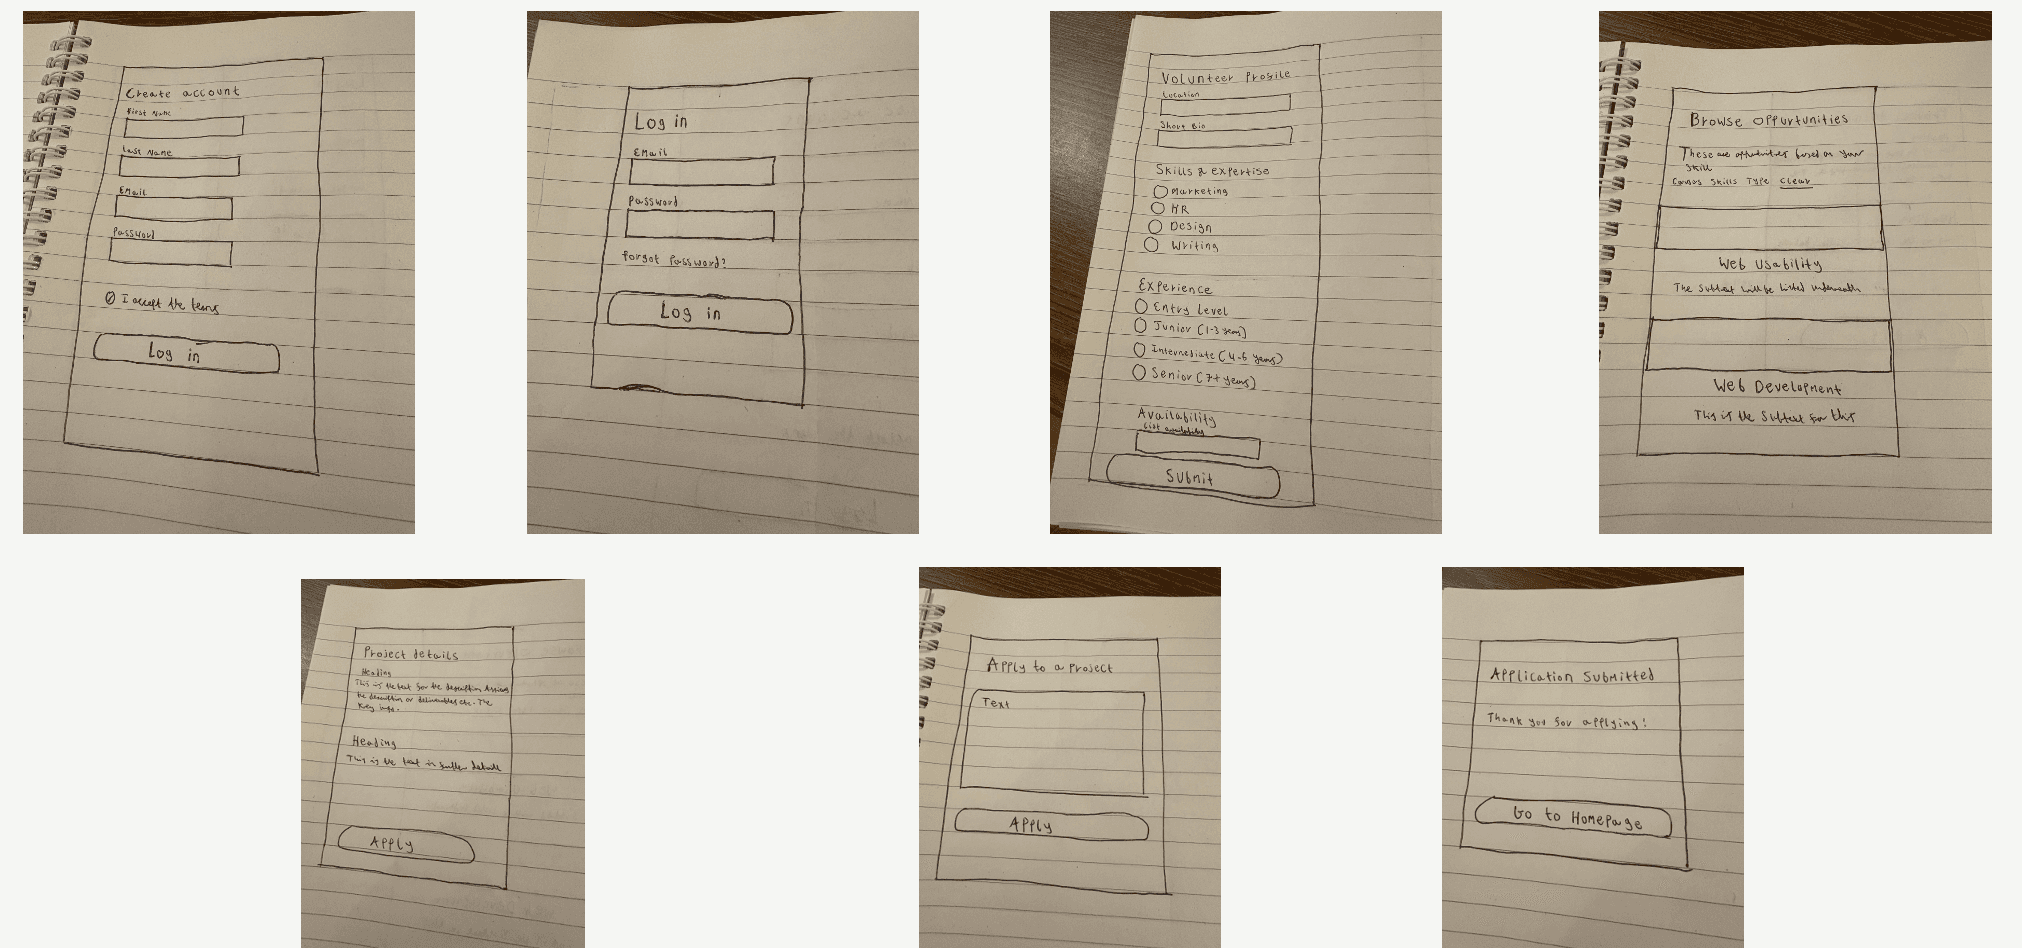 Create account
First Name
Last Name
EMail
Password
I accept the terms
Log in
Log in
EMail
Password
forgot password?
Log in
Volunteer Profile
Location
Short Bio
Skills & expertise
Marketing
HR
Design
Writing
Experience
Entry Level
Junior (1-3 years)
Intermediate (4-6 years)
Senior (7+ years)
Availability
List availability
Submit
Browse Oppurtunities
These are based on your
skill
Causes Skills Type Clear
Web Usability
The Subtext will be listed underneath
Web Development
This is the Subtext for this
Project details
Heading
This is the text for the description
the description or deliverables etc. The
Key info.
Heading
This is the text in details
APPly
Apply to a Project
Text
APPly
Application Submitted
Thank you for applying!
Go to Homepage